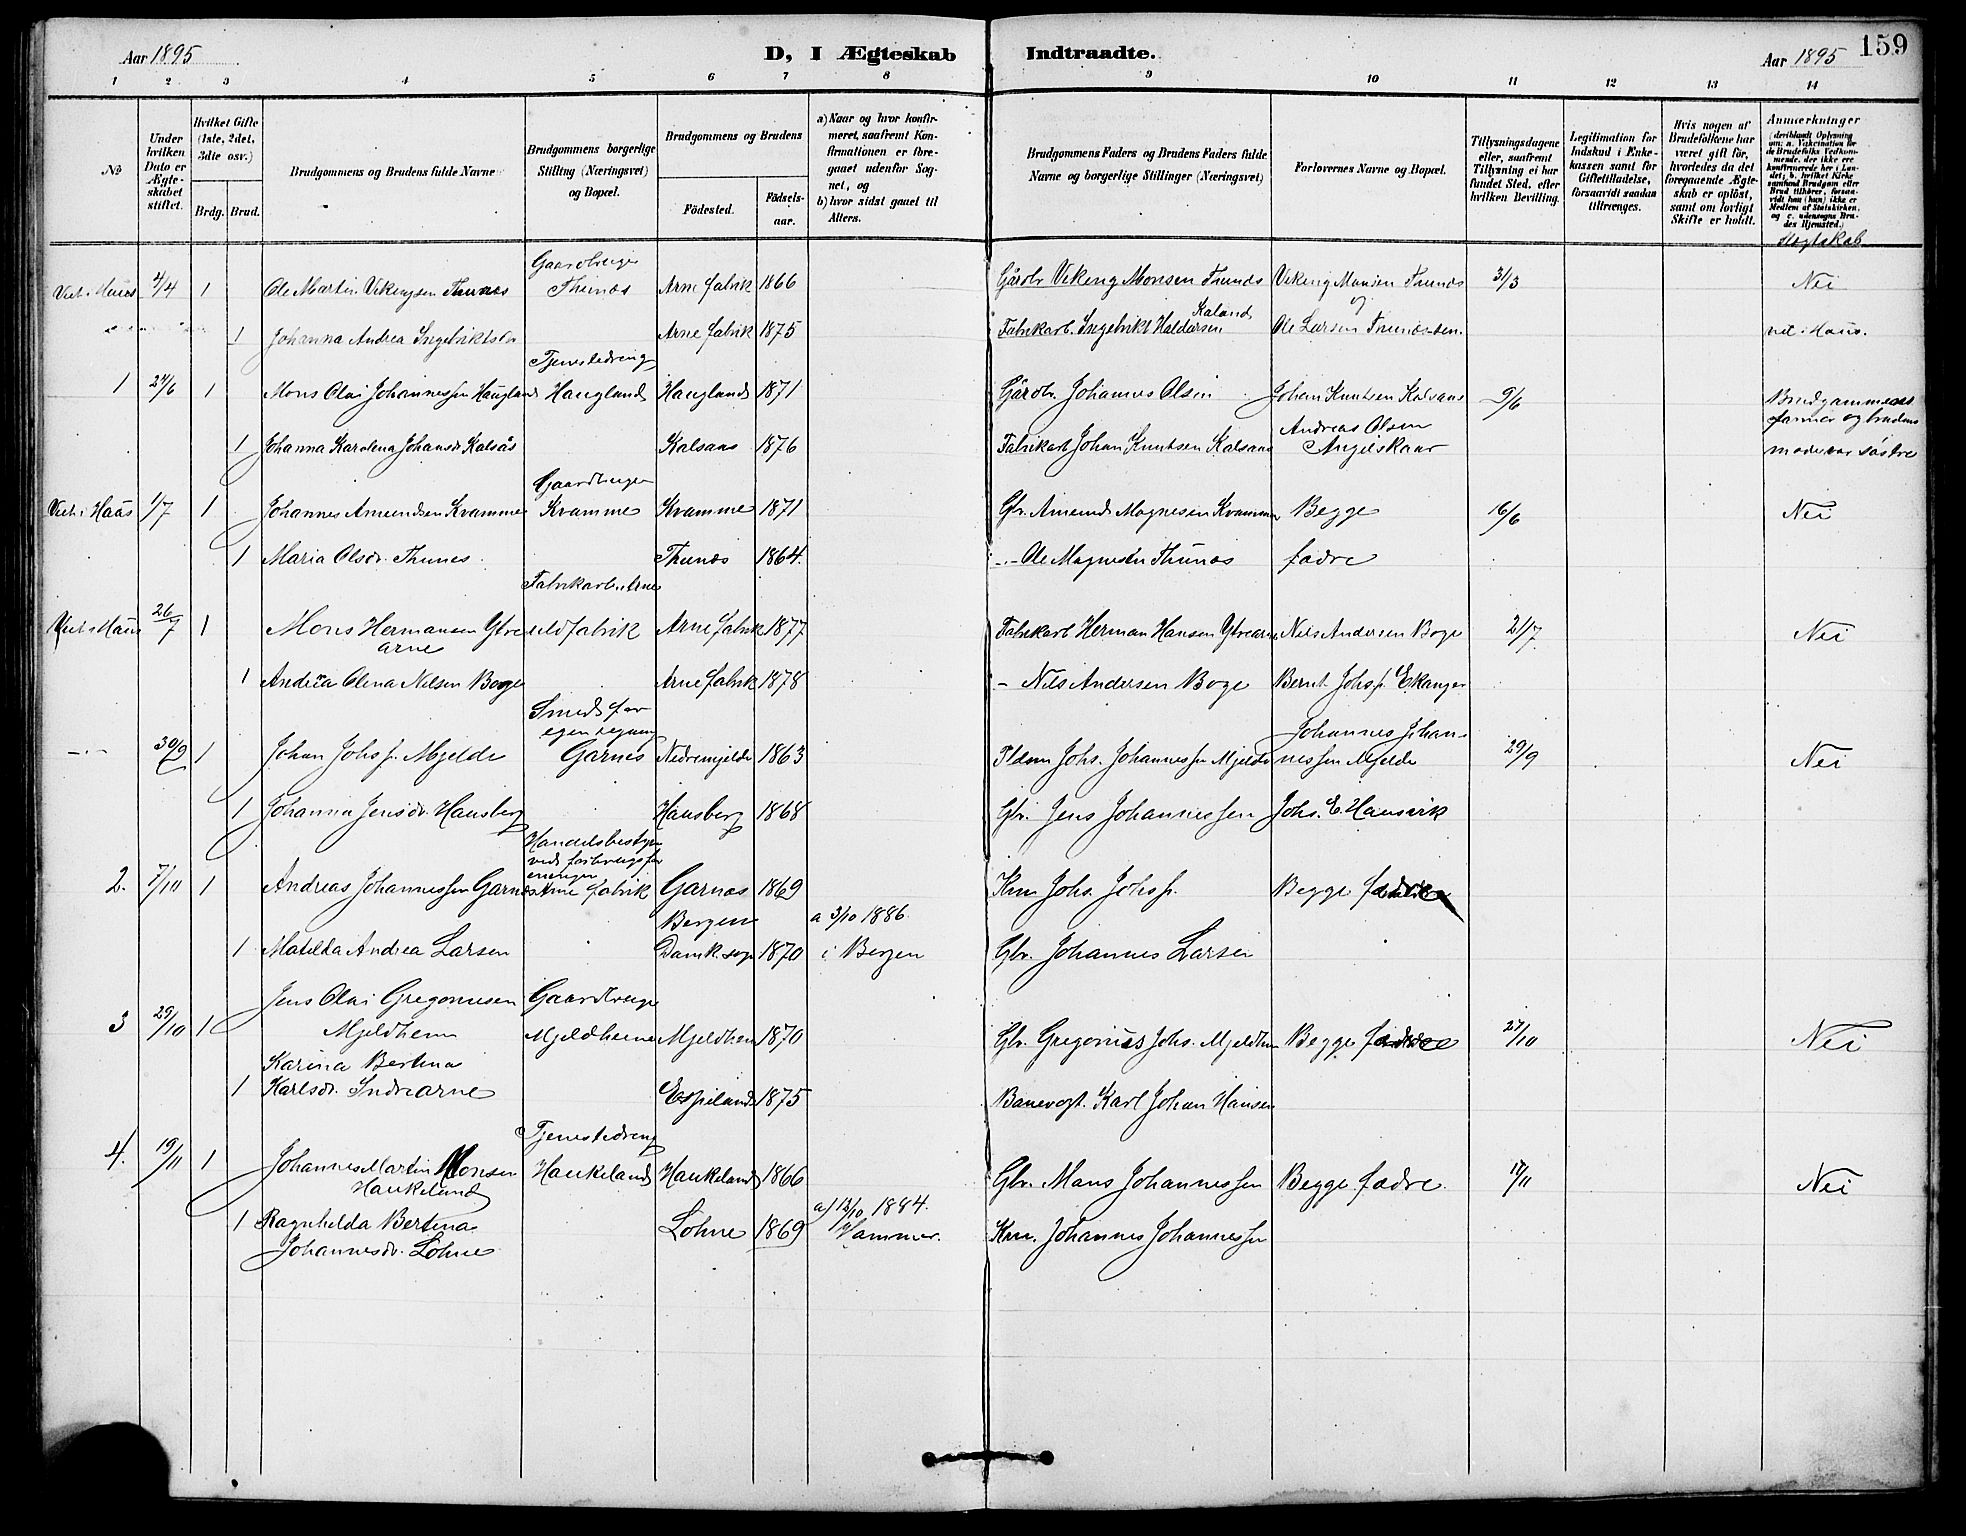 159
Aar 1895
D, I Ægteskab Indtraadte.
Aar 1895
1 2 3 4 5 6 7 8 9 10 11 12 13 14
№
Under hvilken Dato er Ægteskabet stiftet.
Hvilket Gifte (1ste, 2det, 3die osv.)
Brdg. Brud.
Brudgommens og Brudens fulde Navne
Brudgommens borgerlige Stilling (Næringsvei) og Bopæl.
Brudgommens og Brudens
Födested.
Födselsaar.
a) Naar og hvor konfirmeret, saafremt Konfirmationen er foregaaet udenfor Sognet, og
b) hvor sidst gaaet til Alters.
Brudgommens Faders og Brudens Faders fulde Navne og borgerlige Stillinger (Næringsvei)
Forlovernes Navne og Bopæl.
Tillysningsdagene eller, saafremt Tillysning ei har fundet Sted, efter hvilken Bevilling.
Legitimation for Indskud i Enkekassen samt for Giftetilladelse, forsaavidt saadan tiltrænges.
Hvis nogen af Brudefolkene har været gift för, hvorledes da det foregaaende Ægteskab er oplöst, samt om lovligt Skifte er holdt.
Anmerkninger
Slegtskab
Viet i Haus 4/4 1 Ole Martin Vikengsen Thunes Gaardbruger Thunæs Arne fabrik 1866 Gårdbr Vikeng Monsen Tunæs Vikeng Monsen Tunæs 31/3 Nei
1 Johanna Andrea Ingebriktsdr Arne fabrik 1875 Fabrikarb. Ingebrikt Haldorsen Kaland Ole Larsen Tunæs viet i Haus.
1 24/6 1 Mons Olai Johannessen Haugland Tjenestedreng Haugland Haugland 1871 Gårdbr. Johannes Olsen Johan Knutsen Kalsaas 9/6 Brudgommens farmor og brudens
1 Johanna Karolina Johansdr Kalsås Kalsaas 1876 Fabrikarb Johan Knutsen Kalsaas Andreas Olsen moder var söstre
Viet i Haus 1/7 1 Johannes Amundsen Kvamme Gaardbruger Kvamme Kvamme 1871 Gbr. Amund Magnesen Kvamme Begge 16/6 Nei
1 Maria Olsdr. Thunes Thunæs 1864. -"- Ole Magnesen Thunæs fædre
Viet i Haus 26/7 1 Mons Hermansen Ytre arne Fabrikarb. Arne uldfabrik Arne fabrik 1877 Fabrikarb Herman Hansen Ytrearne Nils Andersen Boge 21/7. Nei
1 Andrea Olena Nilsen Boge Arne fabrik 1878 - Nils Andersen Boge Bernt Johs f. Ekanger
-"- 30/9 1 Johan Johs f. Mjelde Smed for egen regning Garnes Nedremjelde 1863 Johs. Johannessen Mjelde Johannes Johannessen Mjelde 29/9 Nei
1 Johanna Jensdr. Hausberg Hausberg 1868 Gbr. Jens Johannessen Johs. E. Hausvik
2. 7/10 1 Andreas Johannessen Garnæs Handelsbestyrer ved forbrugsforeningen Arne fabrik Garnæs 1869 Krm Johs. Johs f. Begge fædre
1 Matelda Andrea Larsen Bergen Domk. sogn 1870 a 3/10 1886. i Bergen Gbr. Johannes Larsen
3 29/10 1 Jens Olai Gregoriusen Mjeldheim Gaardbruger Mjeldheim Mjeldheim 1870 Gbr. Gregorius Johs. Mjeldheim Begge fædre 27/10 Nei
1 Karina Bertina Karlsdr. Indrearne Espeland 1875 Banevogt. Karl Johan Hansen
4. 19/11 1 Johannes Martin Monsen Haukeland Tjenestedreng Haukeland Haukeland 1866 Gbr. Mons Johannessen Begge fædre. 17/11 Nei
1 Ragnhilda Bertina Johannesdr. Lohne Lohne 1869 a) 12/10 1884. Hammer. Krm. Johannes Johannessen